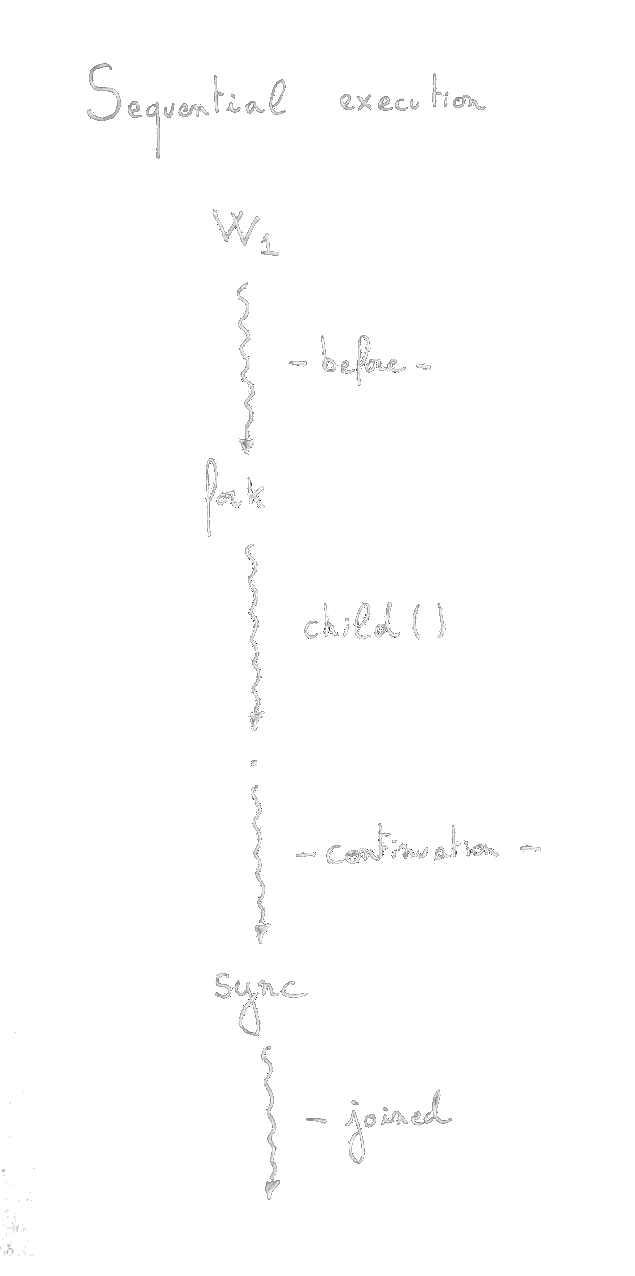 Sequential execution
W1
- before -
fork
child()
- continuation -
sync
- joined